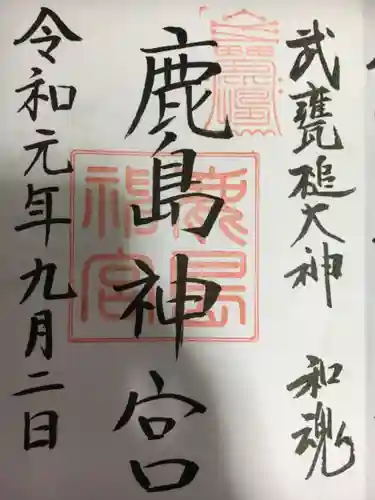 武甕槌大神 和魂
鹿島神宮
令和元年九月二日
鹿島
神宮